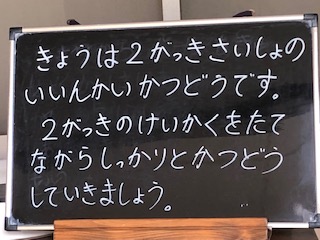 きょうは2がっきさいしょの
いいんかいかつどうです。
2がっきのけいかくをたて
ながらしっかりとかつどう
していきましょう。